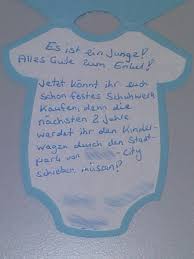 Es ist ein Junge!
Alles Gute zum Enkel!
Jetzt könnt ihr euch
schon festes Schuhwerk
kaufen, denn die
nächsten 2 Jahre
werdet ihr den Kinder-
wagen durch den Stadt-
park von -City
schieben müssen!